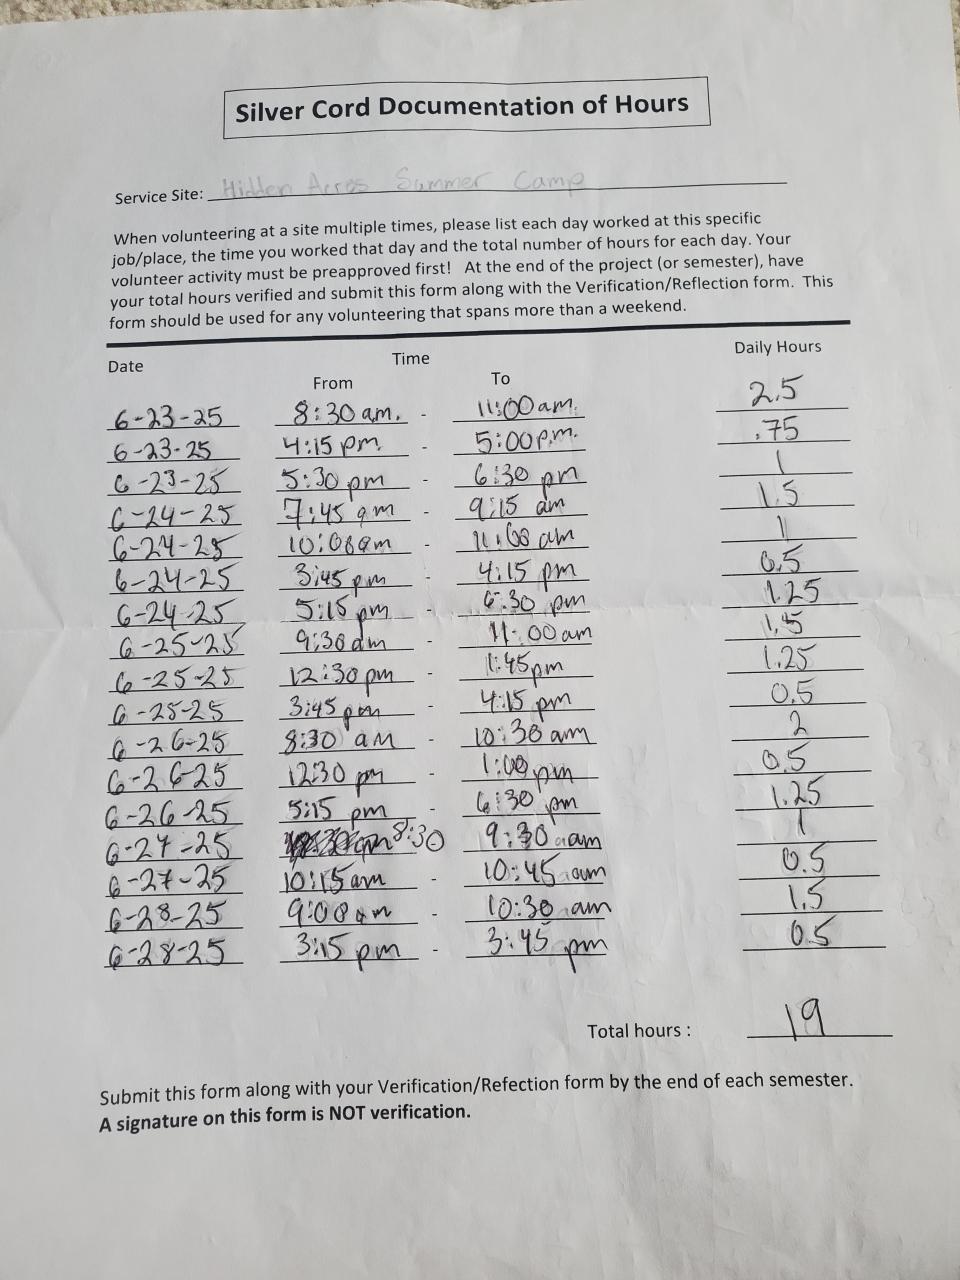 Silver Cord Documentation of Hours
Service Site: Hidden Acres Summer Camp
When volunteering at a site multiple times, please list each day worked at this specific
job/place, the time you worked that day and the total number of hours for each day. Your
volunteer activity must be preapproved first! At the end of the project (or semester), have
your total hours verified and submit this form along with the Verification/Reflection form. This
form should be used for any volunteering that spans more than a weekend.
Date Time Daily Hours
From To
6-23-25 8:30 am. - 11:00 am. 2.5
6-23-25 4:15 pm. - 5:00 p.m. .75
6-23-25 5:30 pm - 6:30 pm 1
6-24-25 7:45 am - 9:15 am 1.5
6-24-25 10:00 am - 11:00 am 1
6-24-25 3:45 pm - 4:15 pm 0.5
6-24-25 5:15 pm - 6:30 pm 1.25
6-25-25 9:30 am - 11:00 am 1.5
6-25-25 12:30 pm - 1:45 pm 1.25
6-25-25 3:45 pm - 4:15 pm 0.5
6-26-25 8:30 am - 10:30 am 2
6-26-25 12:30 pm - 1:00 pm 0.5
6-26-25 5:15 pm - 6:30 pm 1.25
6-27-25 8:30 9:30 am 1
6-27-25 10:15 am - 10:45 am 0.5
6-28-25 9:00 am - 10:30 am 1.5
6-28-25 3:15 pm - 3:45 pm 0.5
Total hours : 19
Submit this form along with your Verification/Refection form by the end of each semester.
A signature on this form is NOT verification.